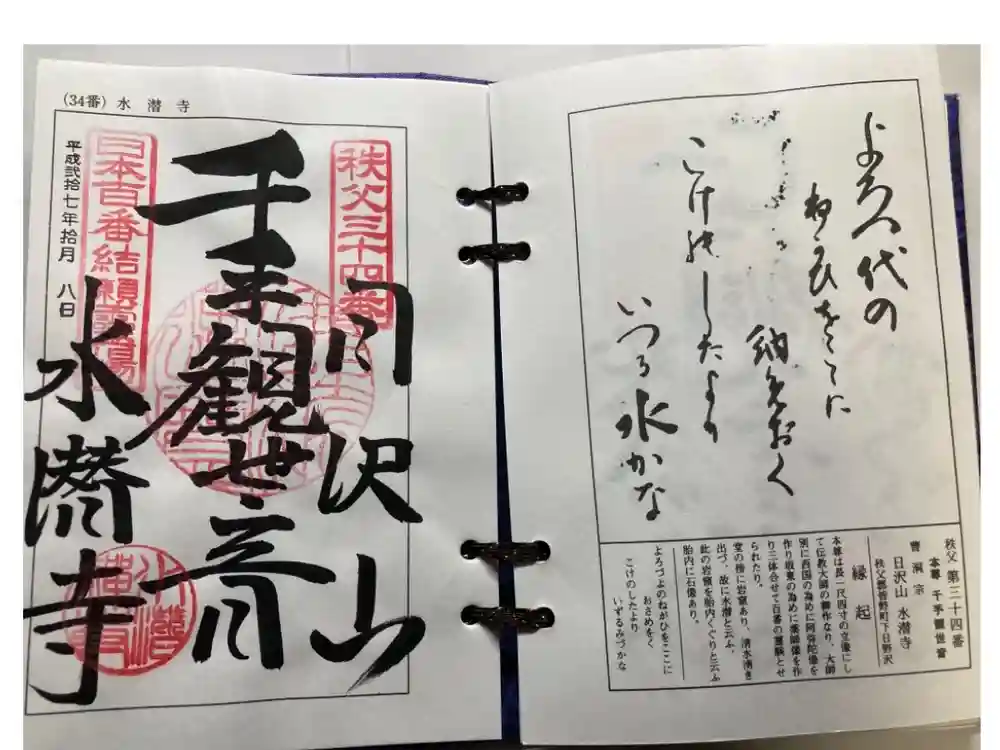 (34番) 水潜寺
秩父三十四番
日沢山
千手観世音
水潜寺
日本百番結願霊場
平成弐拾七年拾月 八日
よろつ代の
ねがひをここに
納めおく
こけの したより
いつる水かな
秩父 第三十四番
本尊 千手観世音
曹洞宗
日沢山 水潜寺
秩父郡皆野町下日野沢
縁起
本尊は長一尺四寸の立像にし
て伝教大師の御作なり、大師
別に西国の為めに阿弥陀像を
作り坂東の為めに薬師像を作
り三体合せて百番の霊験とせ
られたり。
堂の傍に岩窟あり、清水湧き
出づ、故に水潜と云ふ。
此の岩窟を胎内くぐりと云ふ
胎内に石像あり。
よろづよのねがひをここに
おさめをく
こけのしたより
いずるみづかな